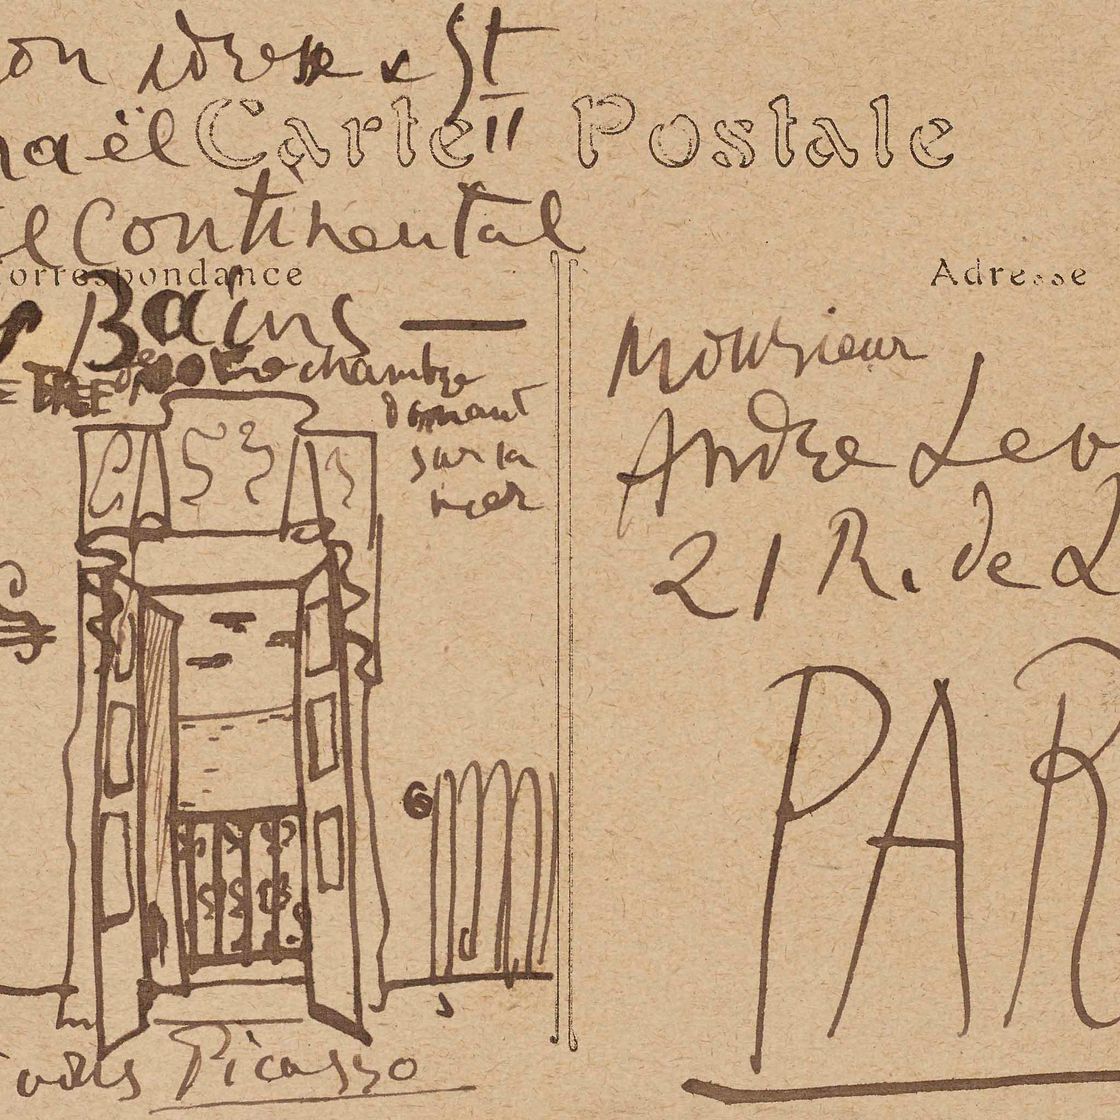 on adresse est
haël II
Carte Postale
el Continental
orrespondance
Adresse
Bains —
de notre chambre
donnant
sur la
mer
Monsieur
André Lev
21 R. de L
PAR
Picasso